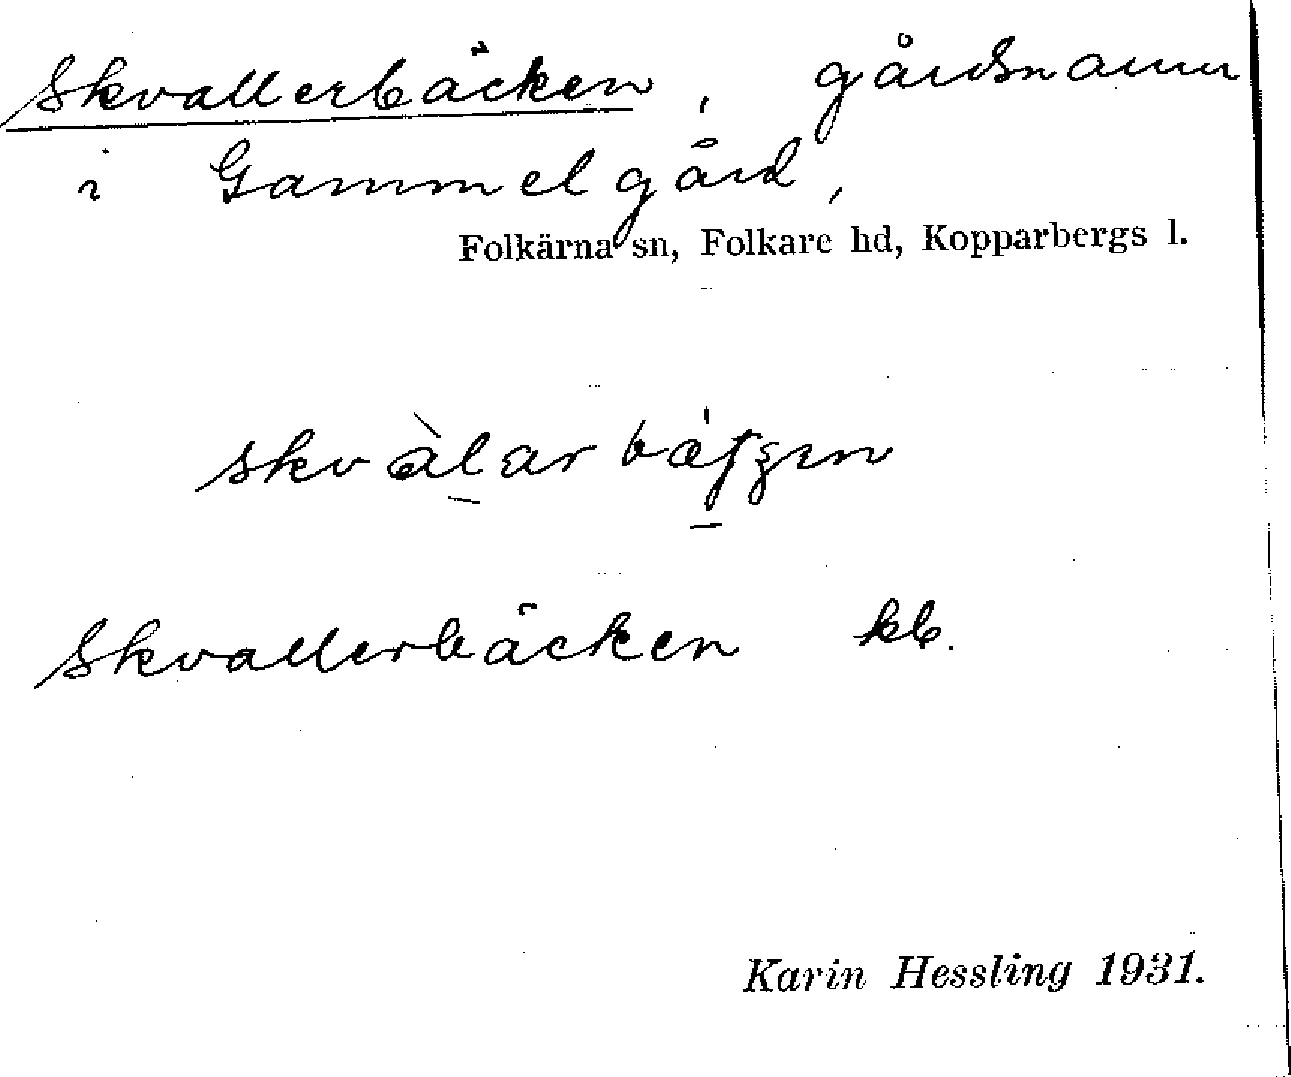 Skvallerbäcken, gårdsnamn
i Gammelgård,
Folkärna sn, Folkare hd, Kopparbergs l.
Skvallerbäcken kb.
Karin Hessling 1931.